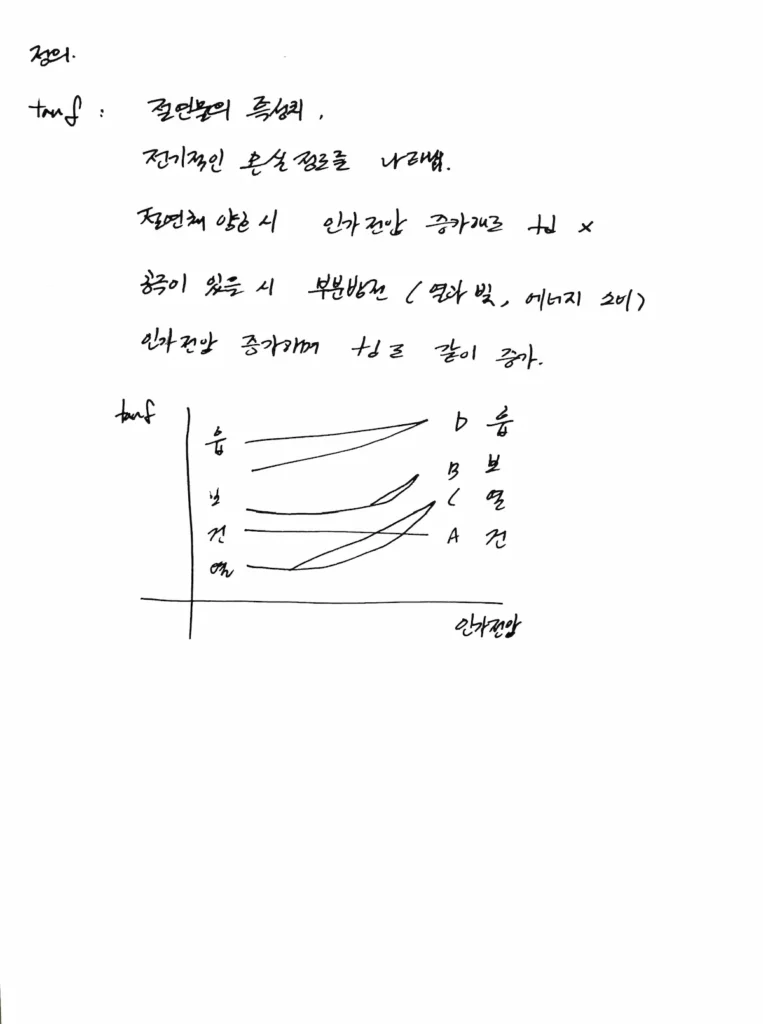 정의.
tanδ : 절연물의 특성치,
전기적인 손실 정도를 나타냄.
절연체 양호 시 인가전압 증가해도 td ×
공극이 있을 시 부분방전 (열과 빛, 에너지 소비)
인가전압 증가하며 td도 같이 증가.
tanδ
흡 D 흡
보 B 보
C 열
건 A 건
열
인가전압